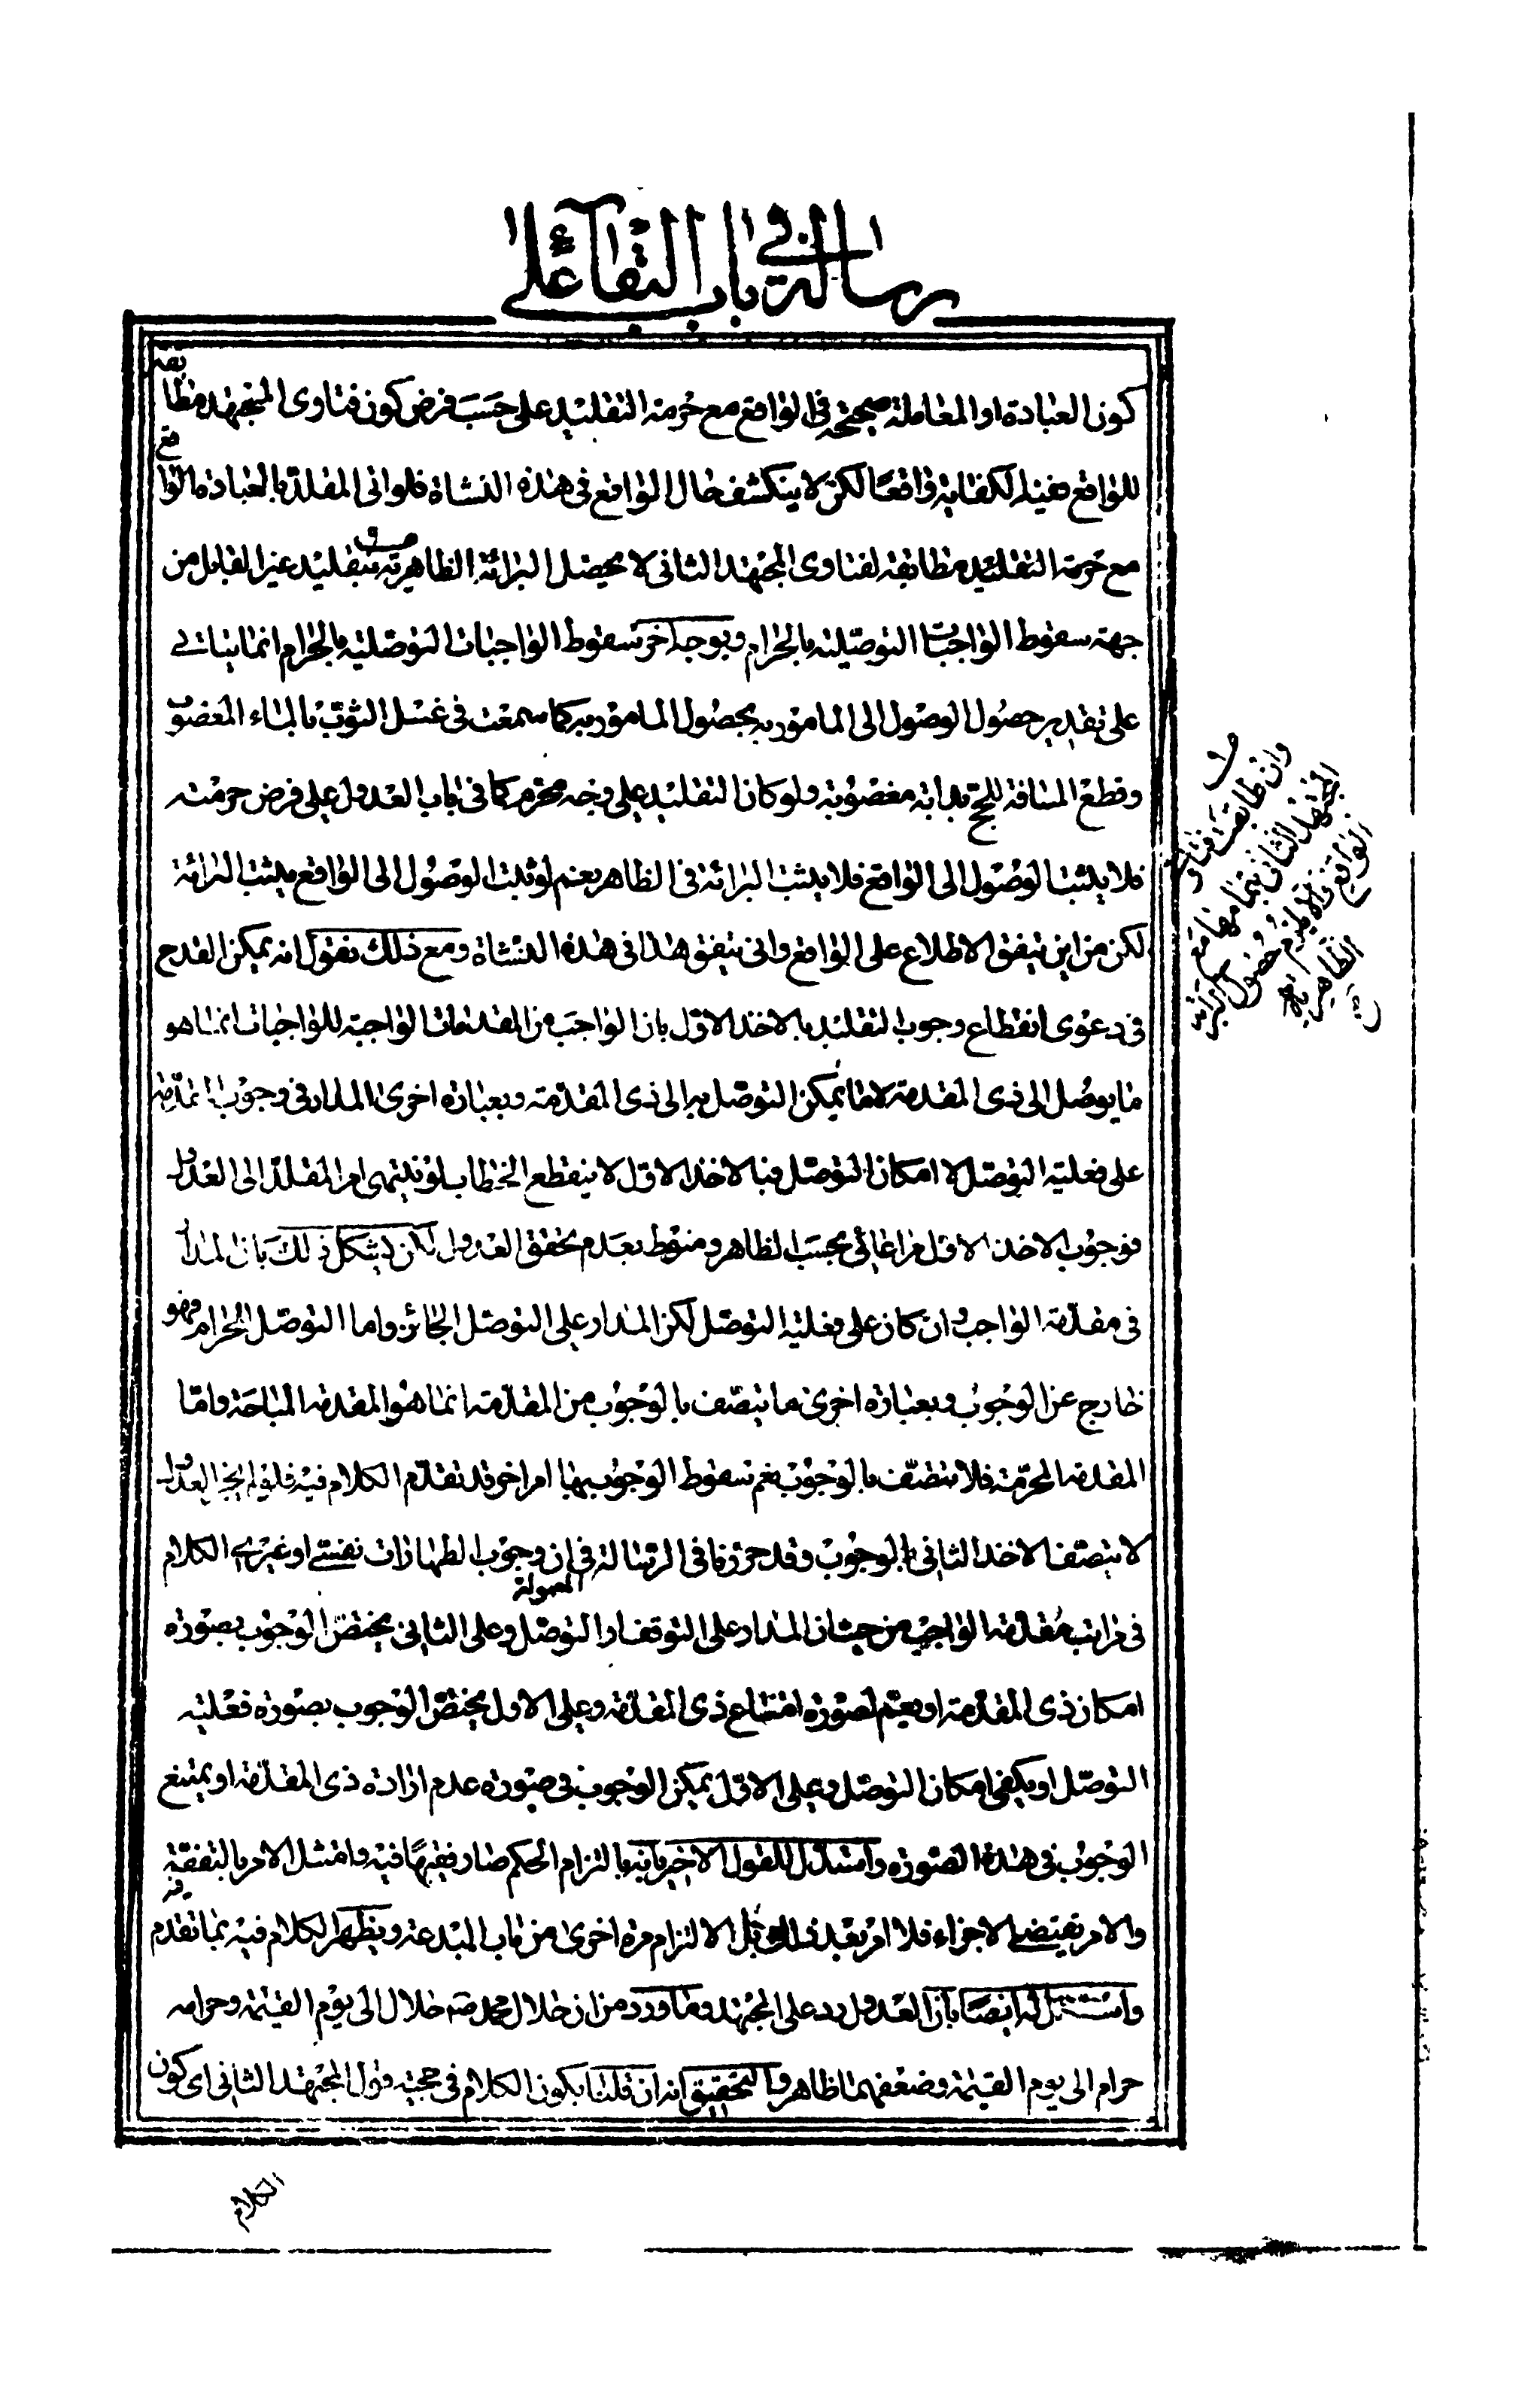 رسالة في باب البقاء على
كون العبادة او المعاملة صحيحة فى الواقع مع حرمة التقليد على حسب فرض كون فتاوى المجتهد مطابقة
للواقع فيه الكفاية واقعا لكن لا ينكشف حال الواقع فى هذه النشاة فلو اتى المقلد بالعبادة مالواقع
مع حرمة التقليد مطابقة لفتاوى المجتهد الثانى لا يحصل البرائة الظاهرية بتقليد غير القابل من
جهة سقوط الواجبات التوصّلية بالحرام وبوجه اخر سقوط الواجبات التوصّلية بالحرام انما يتاتى
على تقدير حصول الوصول الى المامور به بحصول المامور به كما سمعت فى غسل الثوب بالماء المغصوب
وقطع المسافة للحج بدابة مغصوبة ولو كان التقليد على وجه محرم كما فى باب العدول على فرض حرمته
فلا يثبت الوصول الى الواقع فلا يثبت البرائة فى الظاهر نعم لو ثبت الوصول الى الواقع يثبت البرائة
لكن من اين يتفق الاطلاع على الواقع وانى يتفق هذا فى هذه النشاة ومع ذلك نقول انه يمكن القدح
فى دعوى انقطاع وجوب التقليد بالاخذ الاول بان الواجب من المقدمات الواجبة للواجبات انما هو
ما يوصل الى ذى المقدمة لا ما يمكن التوصّل به الى ذى المقدّمة وبعبارة اخرى المدار فى وجوب المقدّمة
على فعلية التوصّل لا امكان التوصّل فبالاخذ الاول لا ينقطع الخطاب لو ينتهى امر المقلد الى العدول
فوجوب الاخذ الاول مراعائى بحسب الظاهر ومنوط بعدم تحقق العدول لكن يشكل ذلك بان المدار
فى مقدّمة الواجب وان كان على فعلية التوصّل لكن المدار على التوصّل الجائز واما التوصّل الحرام فهو
خارج عن الوجوب وبعبارة اخرى ما يتصف بالوجوب من المقدّمة انما هو المقدمة المباحة وامّا
المقدمة المحرّمة فلا تتصّف بالوجوب نعم سقوط الوجوب بها امر اخر وقد تقدّم الكلام فيه فلو لم يجز العدول
لا يتصّف الاخذ الثانى بالوجوب وقد حررنا فى الرسالة المعمولة فى ان وجوب الطهارات نفسى او غيرى الكلام
فى مراتب مقدّمة الواجب من حيث ان المدار على التوقف او التوصّل وعلى الثانى يختصّ الوجوب بصورة
امكان ذى المقدّمة او يعمّ لصورة امتناع ذى المقدّمة وعلى الاول يختصّ الوجوب بصورة فعلية
التوصّل او يكفى امكان التوصّل وعلى الاول يمكن الوجوب فى صورة عدم ارادة ذى المقدّمة او يمتنع
الوجوب فى هذه الصورة واستدل للقول الاخير بانه بالتزام الحكم صار فقيها فيه وامتثل الامر بالتفقه فيه
والامر يقتضى الاجزاء فلا امر بعد ذلك بل الالتزام مرة اخرى من باب البدعة ويظهر الكلام فيه بما تقدم
واستدل له ايضا بان العدول رد على المجتهد وما ورد من ان حلال محمد ص حلال الى يوم القيمة وحرامه
حرام الى يوم القيمة وضعفهما ظاهر والتحقيق انه ان قلنا بكون الكلام فى حجية قول المجتهد الثانى اى كون
وان طابقت فتاوى
المجتهد الثانى بتمامها مع
الواقع ولا يلزم حصول البرائة
الظاهرية
الكلام